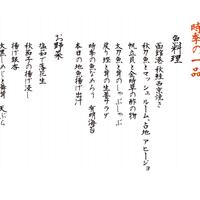 時季の一品
魚料理
函館港 秋鮭西京焼き
秋刀魚とマッシュルーム、占地 アヒージョ
帆立貝と金時草の酢の物
太刀魚と茸のしゃぶしゃぶ
戻り鰹と茸の生姜サラダ
時季の魚なめろう 有明海苔
本日の地魚揚げ出汁
お野菜
塩ゆで落花生
秋茄子の揚げ浸し
揚げ銀杏
大黒しめじと舞茸 天ぷら